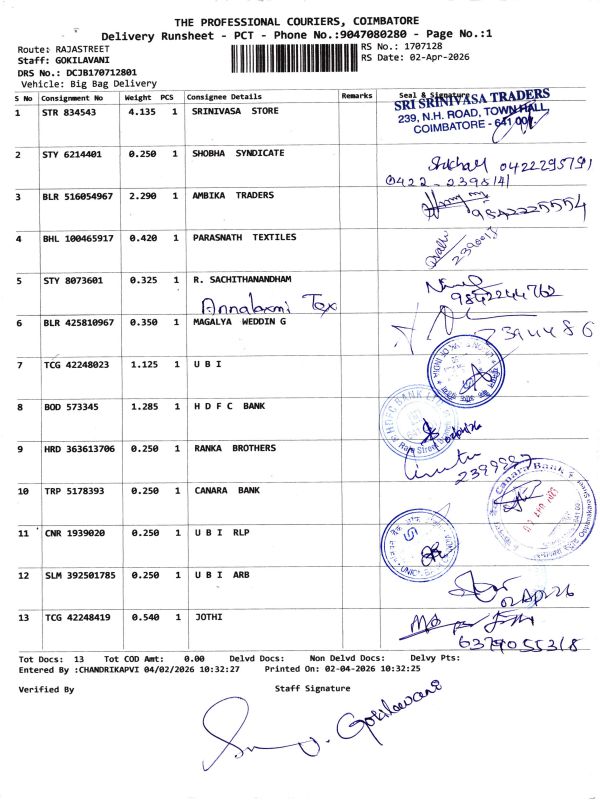 THE PROFESSIONAL COURIERS, COIMBATORE
Delivery Runsheet - PCT - Phone No.:9047080280 - Page No.:1
Route: RAJASTREET
RS No.: 1707128
Staff: GOKILAVANI
RS Date: 02-Apr-2026
DRS No.: DCJB170712801
Vehicle: Big Bag Delivery
S No Consignment No Weight PCS Consignee Details Remarks Seal & Signature
1 STR 834543 4.135 1 SRINIVASA STORE
SRI SRINIVASA TRADERS
239, N.H. ROAD, TOWN HALL
COIMBATORE - 641 001.
2 STY 6214401 0.250 1 SHOBHA SYNDICATE
0422295791
0422-
3 BLR 516054967 2.290 1 AMBIKA TRADERS
9842225554
4 BHL 100465917 0.420 1 PARASNATH TEXTILES
5 STY 8073601 0.325 1 R. SACHITHANANDHAM
9842244762
Annalaxmi Tex
6 BLR 425810967 0.350 1 MAGALYA WEDDIN G
2394486
7 TCG 42248023 1.125 1 U B I
8 BOD 573345 1.285 1 H D F C BANK
HDFC BANK
9 HRD 363613706 0.250 1 RANKA BROTHERS
2399887
10 TRP 5178393 0.250 1 CANARA BANK
Canara Bank
11 CNR 1939020 0.250 1 U B I RLP
12 SLM 392501785 0.250 1 U B I ARB
02 Apr 26
13 TCG 42248419 0.540 1 JOTHI
6379055318
Tot Docs: 13 Tot COD Amt: 0.00 Delvd Docs: Non Delvd Docs: Delvy Pts:
Entered By :CHANDRIKAPVI 04/02/2026 10:32:27 Printed On: 02-04-2026 10:32:25
Verified By Staff Signature
Gokilavani